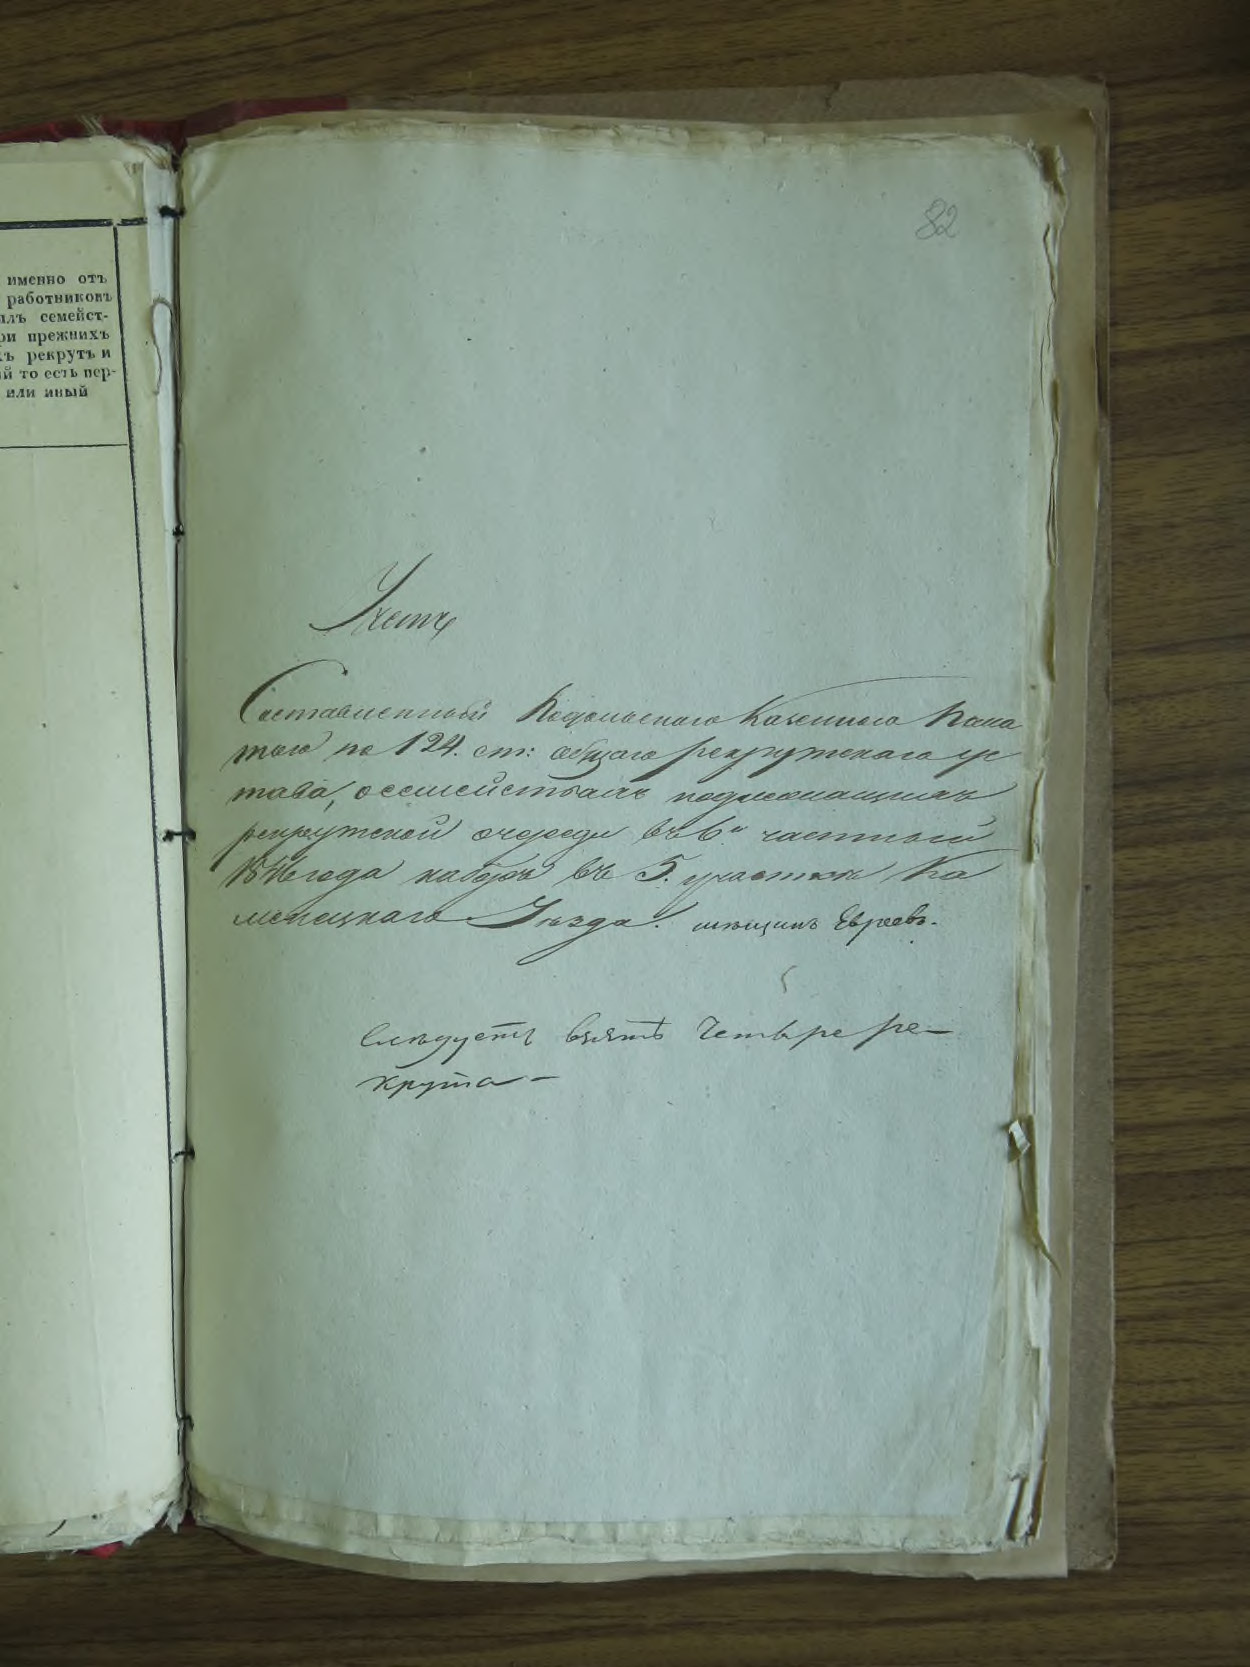 именно отъ
работниковъ
семейст-
прежнихъ
рекрутъ и
й то есть пер-
или иный
82
Учетъ
Составленный Подольскаго Казенною Пала
тою по 124. ст: общаго рекрутскаго ус
тава, о семействахъ подлежащихъ
рекрутской очереди въ 6й частный
1846 года наборъ въ 5. участокъ Ка
менецкаго Уѣзда. мѣщанъ Евреевъ.
Слѣдуетъ взять четыре ре-
крута-